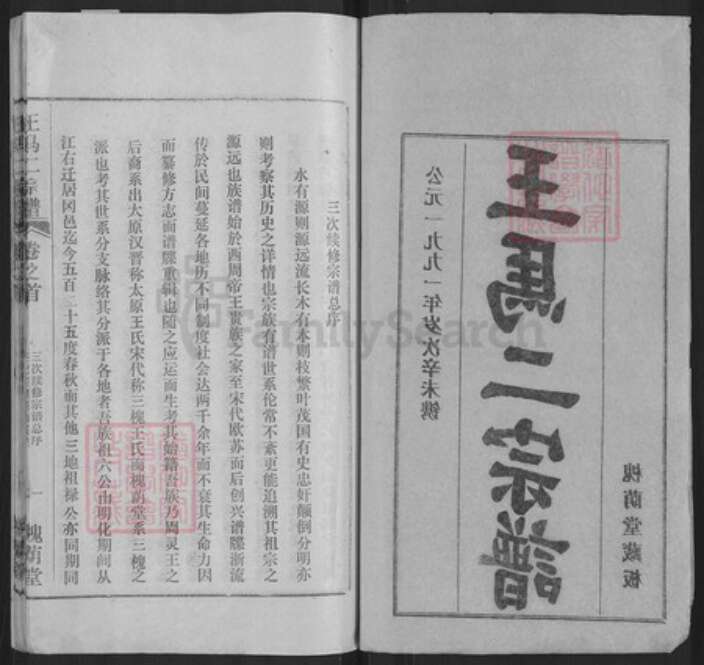 王馬二宗譜
公元一九九一年岁次辛未镌
槐荫堂藏板
三次续修宗谱总序
水有源则源远流长木有本则枝繁叶茂国有史忠奸颠倒分明亦
则考察其历史之详情也宗族有谱世系伦常不紊更能追溯其祖宗之
源远也族谱始於西周帝王贵族之家至宋代欧苏而后创兴谱牒浙流
传於民间蔓延各地历不同制度社会达两千余年而不衰其生命力因
而纂修方志而谱牒重辑也随之应运而生考其始辂吾族乃周灵王之
后裔系出大原汉晋称太原王氏宋代称三槐王氏而槐荫堂系三槐之
派也考其世系分支脉络其分派于各地者吾族祖六公由明化期间从
江右迁居冈邑迄今五百二十五度春秋而其他三地祖禄公亦同期同
王馬二宗譜
卷之首
三次续修宗谱总序
一
槐荫堂
FamilySearch